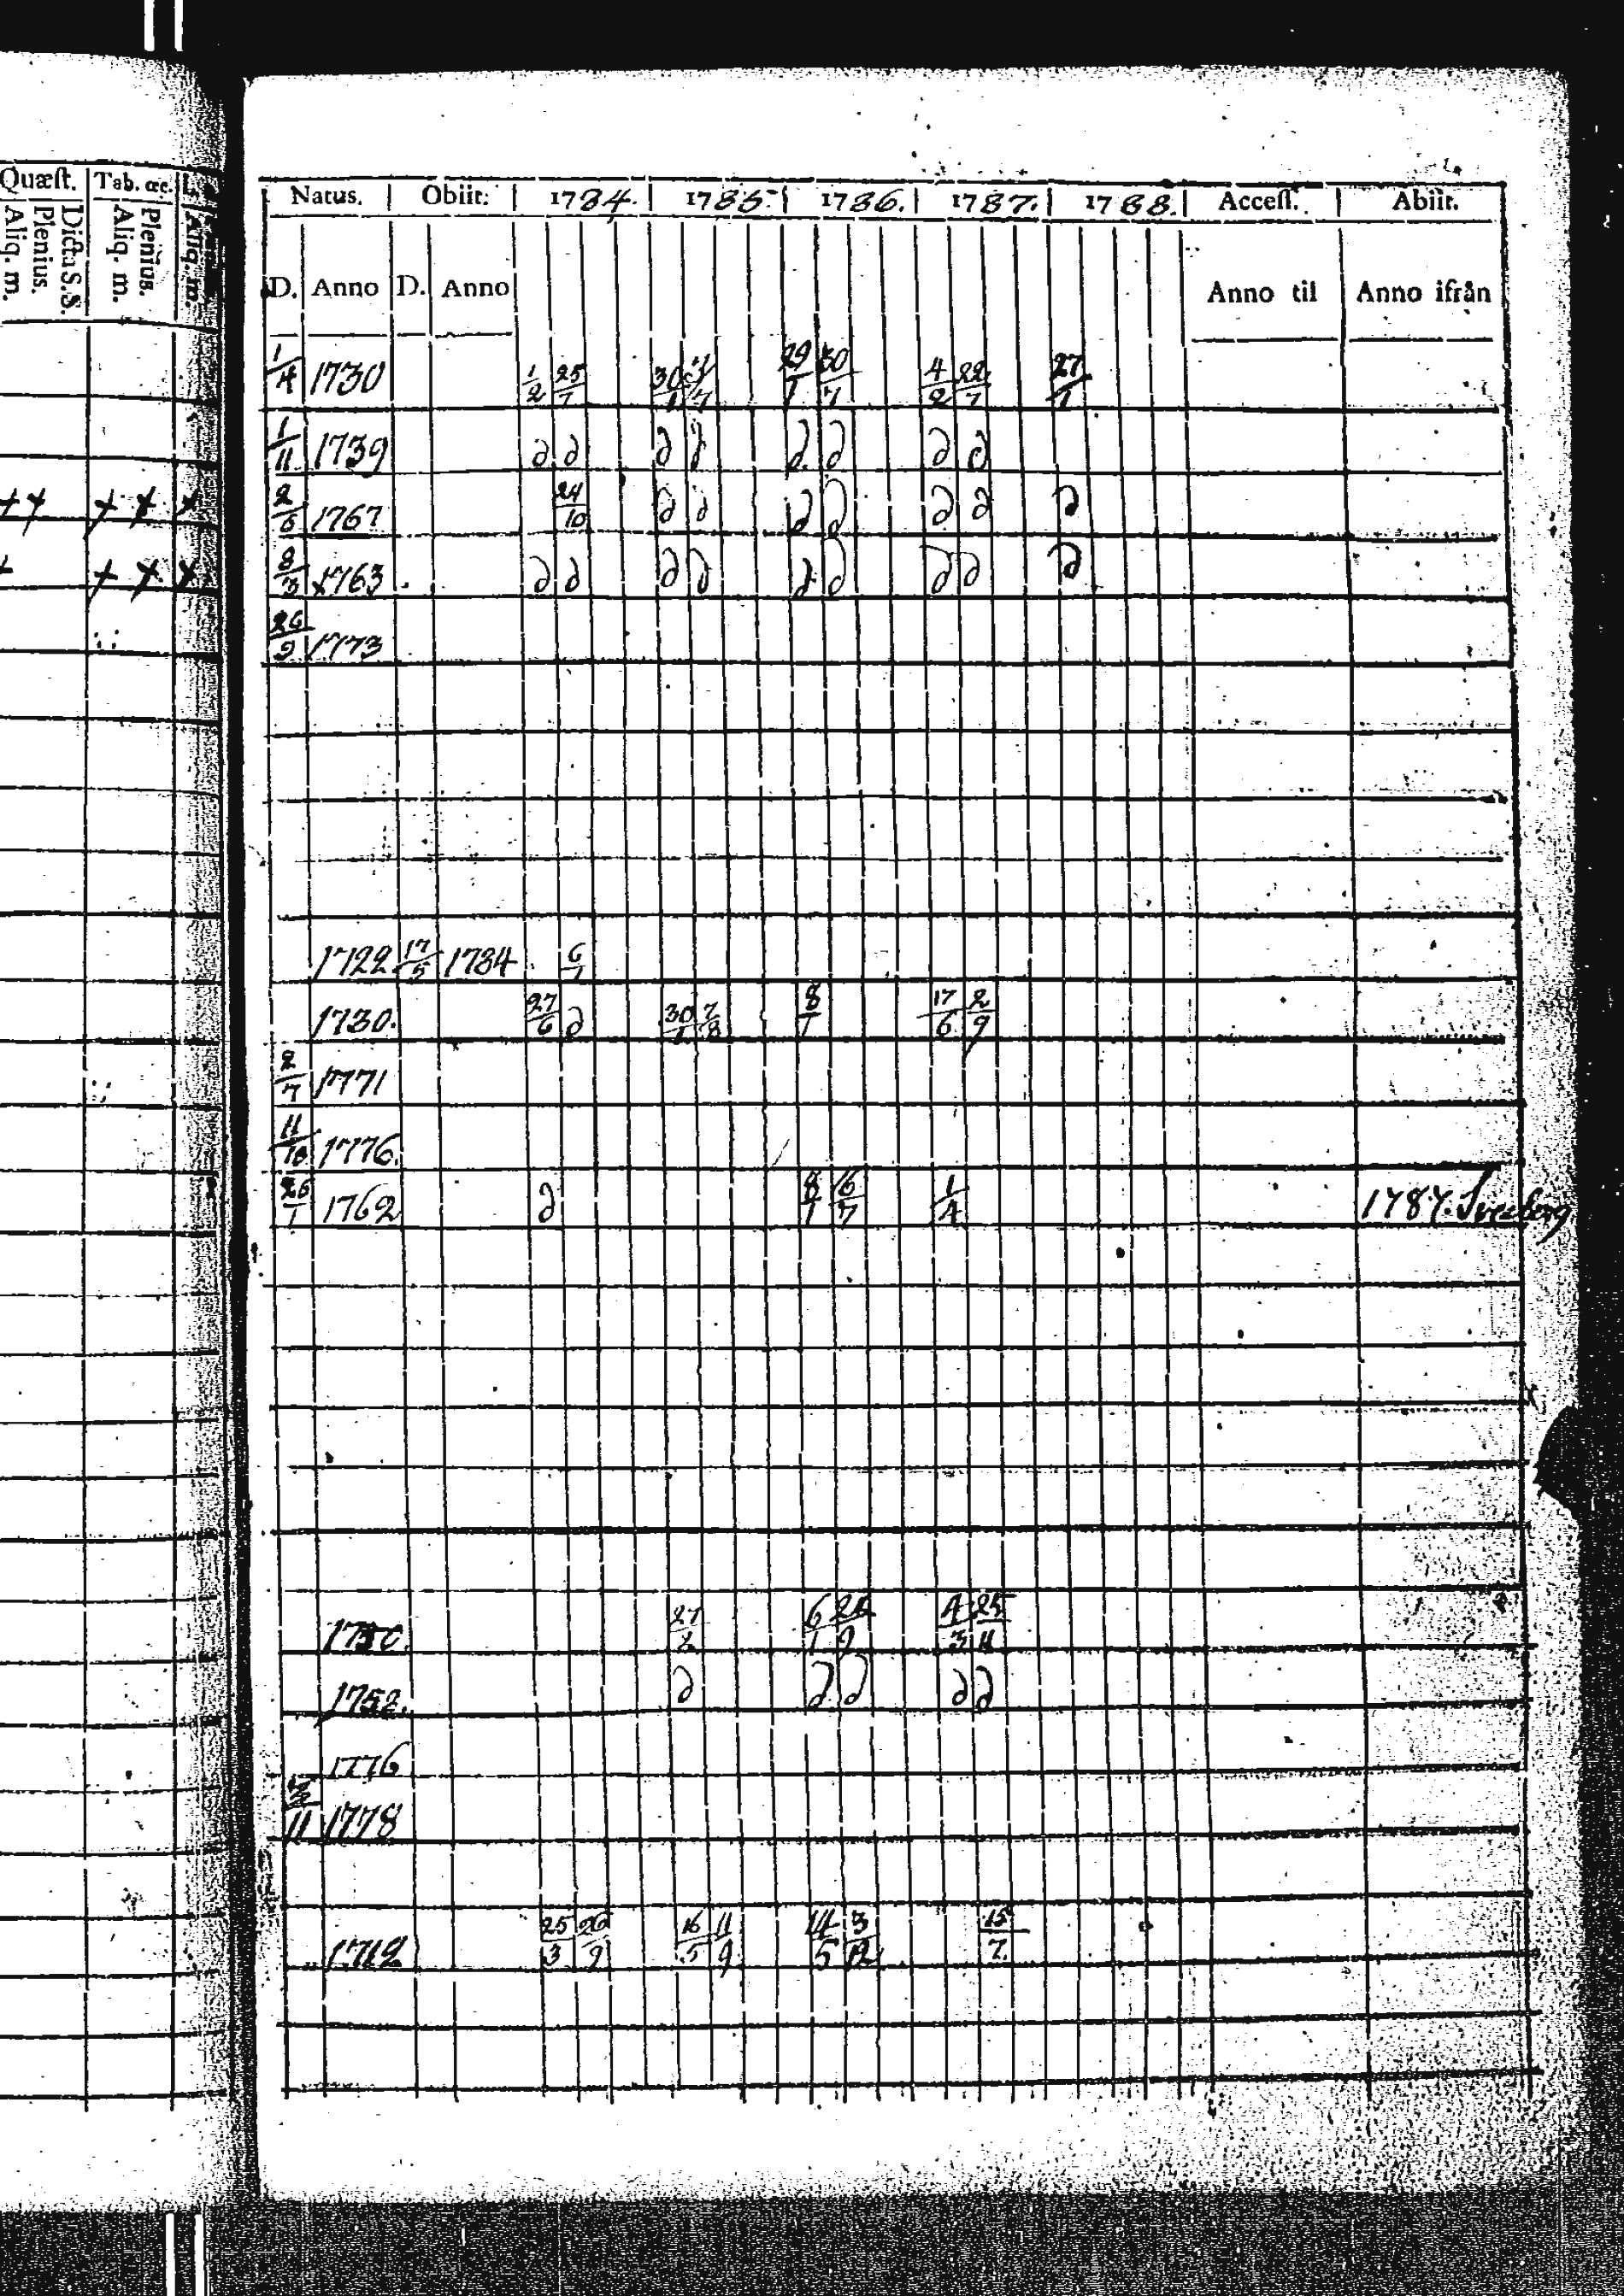 Quæſt. Tab. œc.
Dicta S.S. Plenius. Aliq. m. Plenius. Aliq. m. Aliq. m.
Natus. Obiit. 1784. 1785. 1786. 1787. 1788. Acceſſ. Abiit.
D. Anno D. Anno Anno til Anno ifrån
1/4 1730 1/2 25/7 30/1 29/1 30/7 4/2 22/7 27/1
1/11 1739 ∂ ∂ ∂ ∂ ∂ ∂ ∂ ∂
++ + + + 2/6 1767 24/10 ∂ ∂ ∂ ∂ ∂ ∂ ∂
+ + + + 8/3 1763 ∂ ∂ ∂ ∂ ∂ ∂ ∂ ∂ ∂
26/9 1773
1722 17/5 1784 6/1
1730. 27/6 ∂ 30/1 7/8 8/1 17/6 2/9
2/7 1771
11/10 1776.
26/1 1762 ∂ 8/1 6/7 1/4 1787.
27/2 6/1 4/3 25/11
1752. ∂ ∂ ∂ ∂ ∂
1776
11 1778
1712 25/3 26/9 16/5 11/9 14/5 3/12 15/7